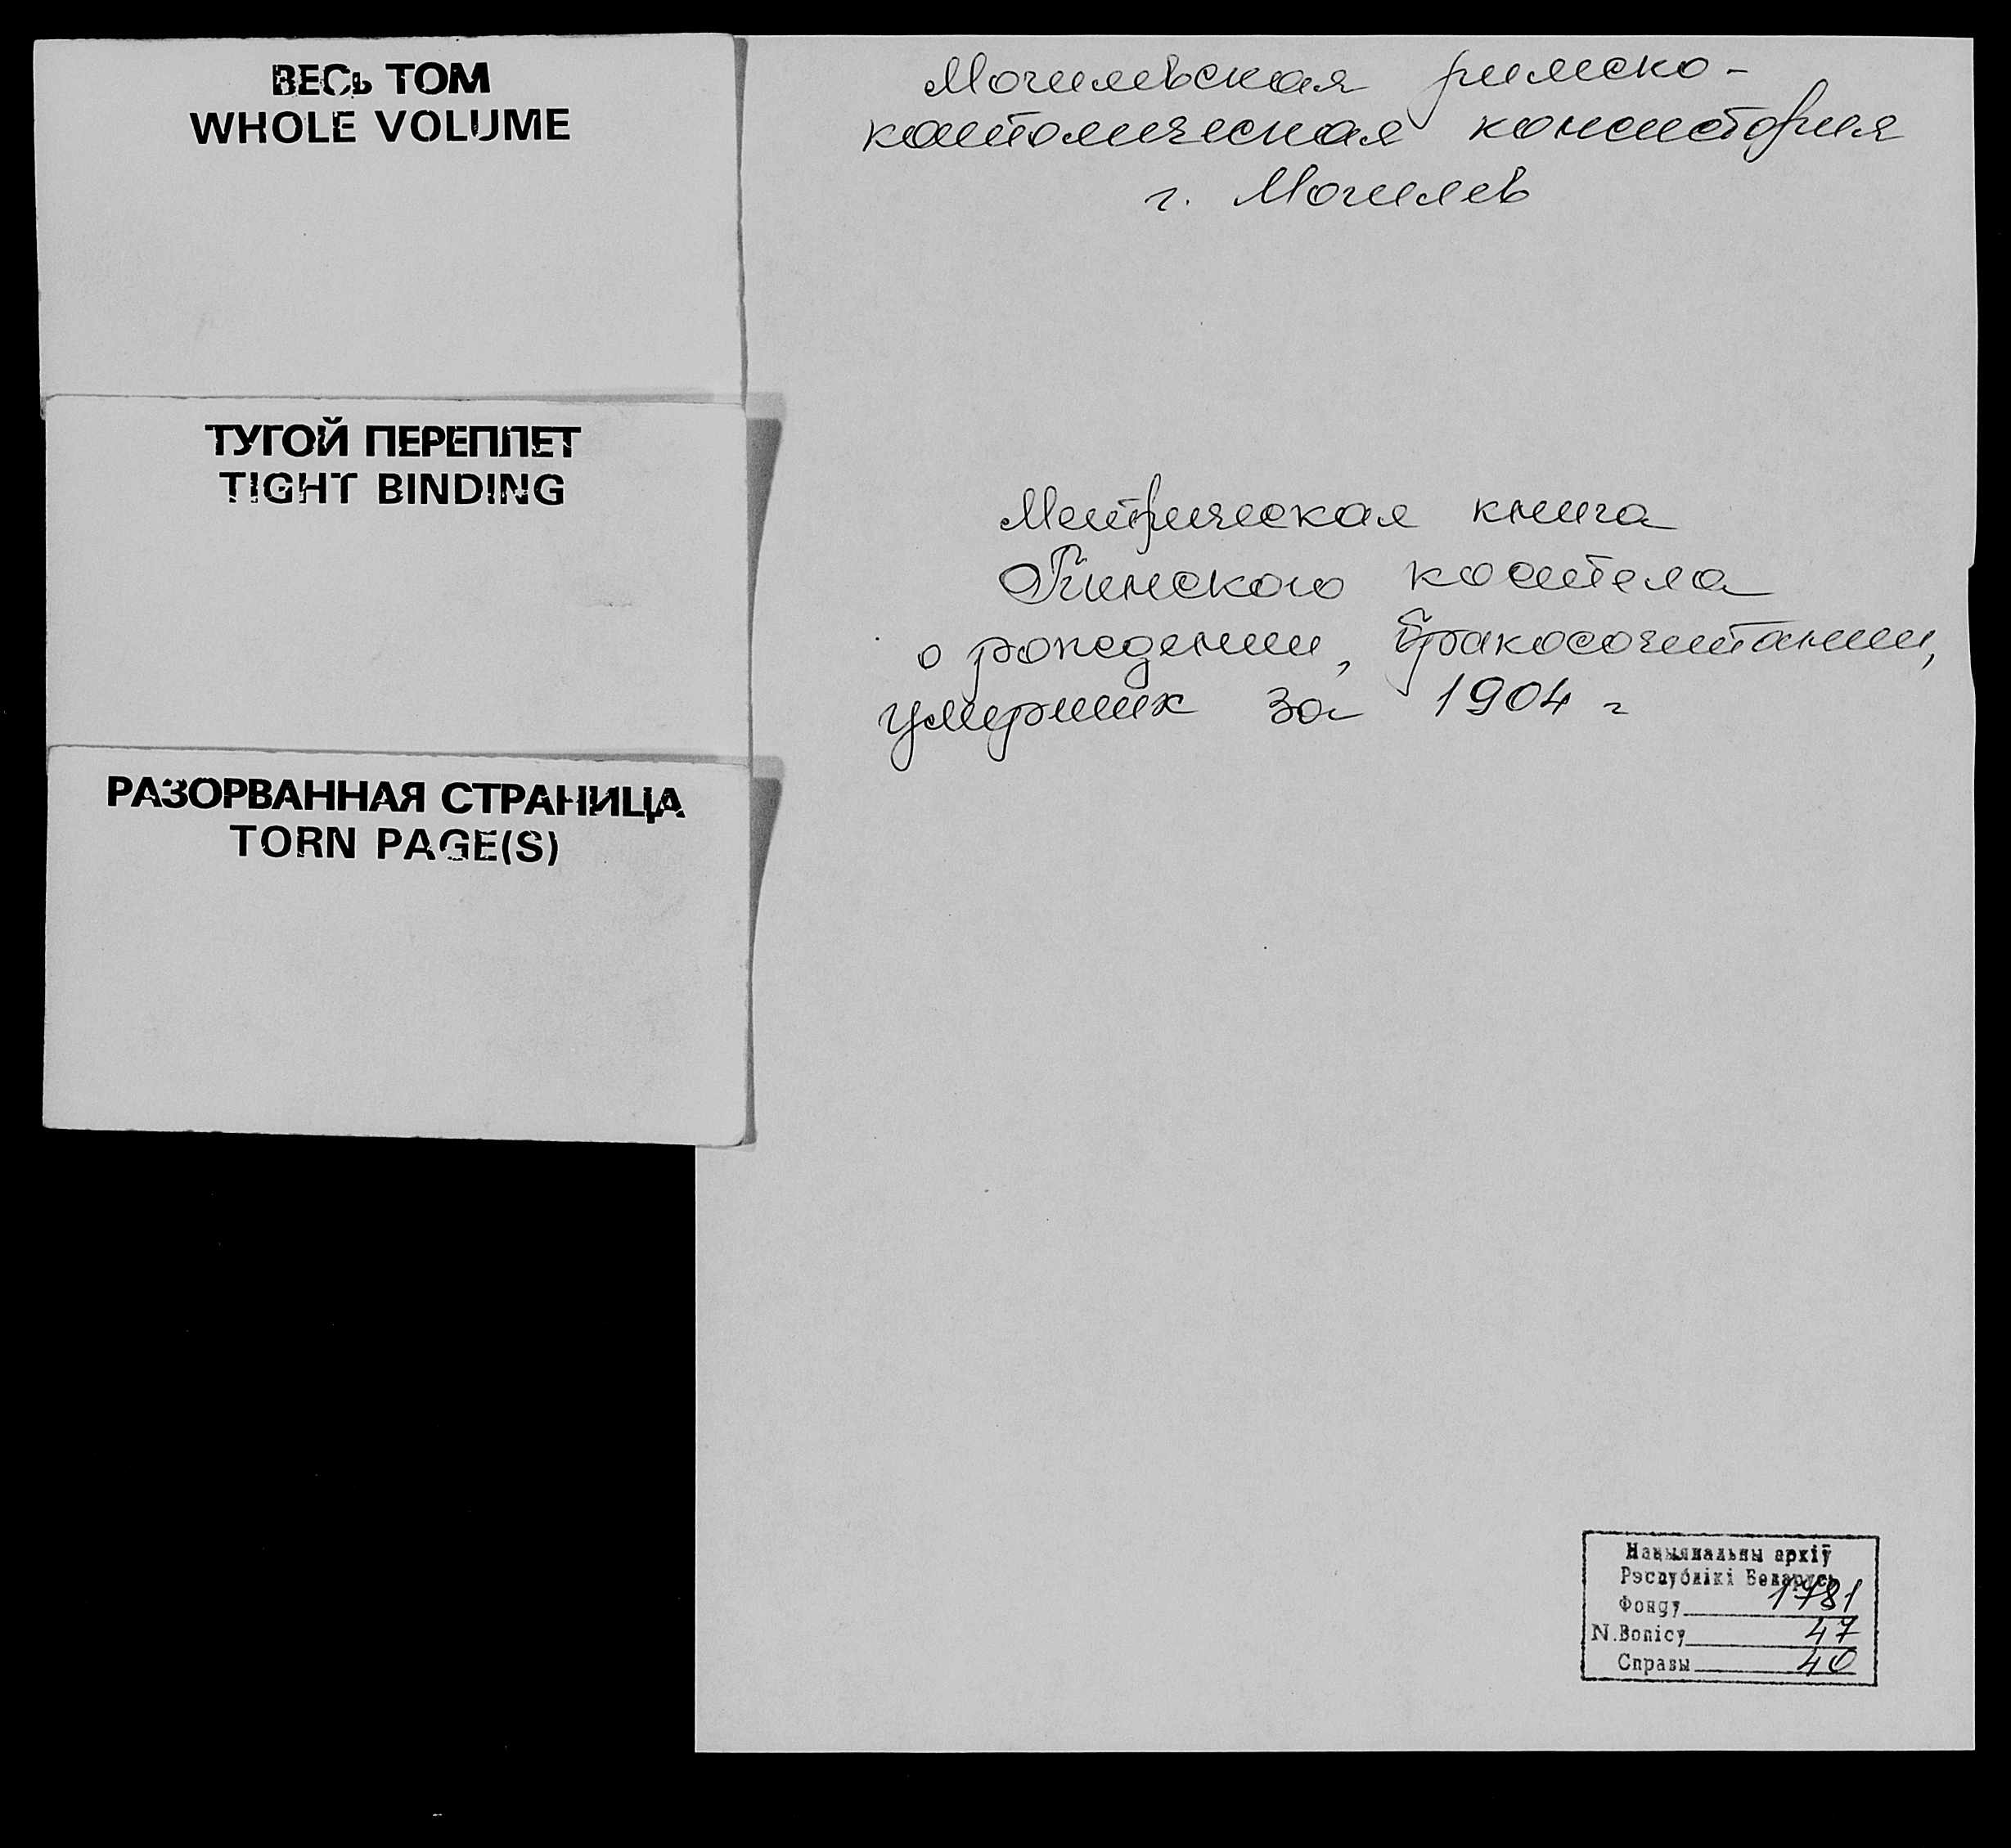 ВЕСЬ ТОМ
WHOLE VOLUME
ТУГОЙ ПЕРЕПЛЕТ
TIGHT BINDING
РАЗОРВАННАЯ СТРАНИЦА
TORN PAGE(S)
Могилевская римско-
католическая консистория
г. Могилев
Метрическая книга
костела
о рождении, бракосочетании,
умерших за 1904 г
Нацыянальны архіў
Рэспублікі Беларусь
Фонду 1781
N.Вопісу 47
Справы 40